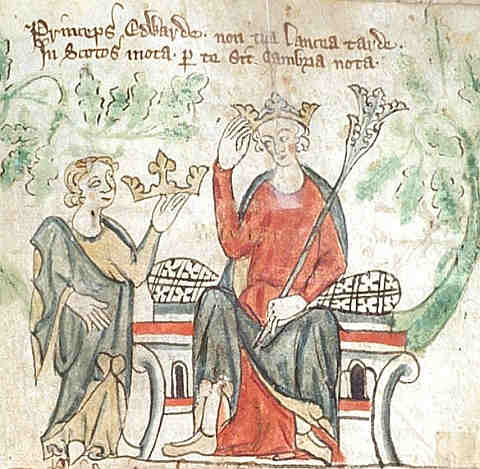 Princeps Edwarde. non tua lancea tarde.
In Scotos mota. p te sit Cambria nota.